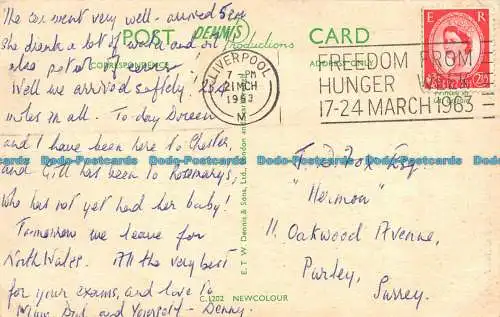 The car went very well - arrived 5pm
She drank a lot of water and oil
also petrol of course
Well we arrived safely. 234
miles in all. To day Doreen
and I have been here to Chester,
and Gill has been to Rosemary's,
who has not yet had her baby!
Tomorrow we leave for
North Wales. All the very best
for your exams, and love to
Mum, Dad and Yourself - Denny.
POST CARD
DENNIS
Productions
CORRESPONDENCE
ADDRESS ONLY
LIVERPOOL
7 - PM
21 MCH
1963
M
FREEDOM FROM
HUNGER WEEK
17-24 MARCH 1963
E R
E. T. W. Dennis & Sons, Ltd., London and
C.1202 NEWCOLOUR
T. D. Fox Esq.
"Hermon"
11. Oakwood Avenue,
Purley,
Surrey.
Postcards-Postcards-Postcards-Postcards